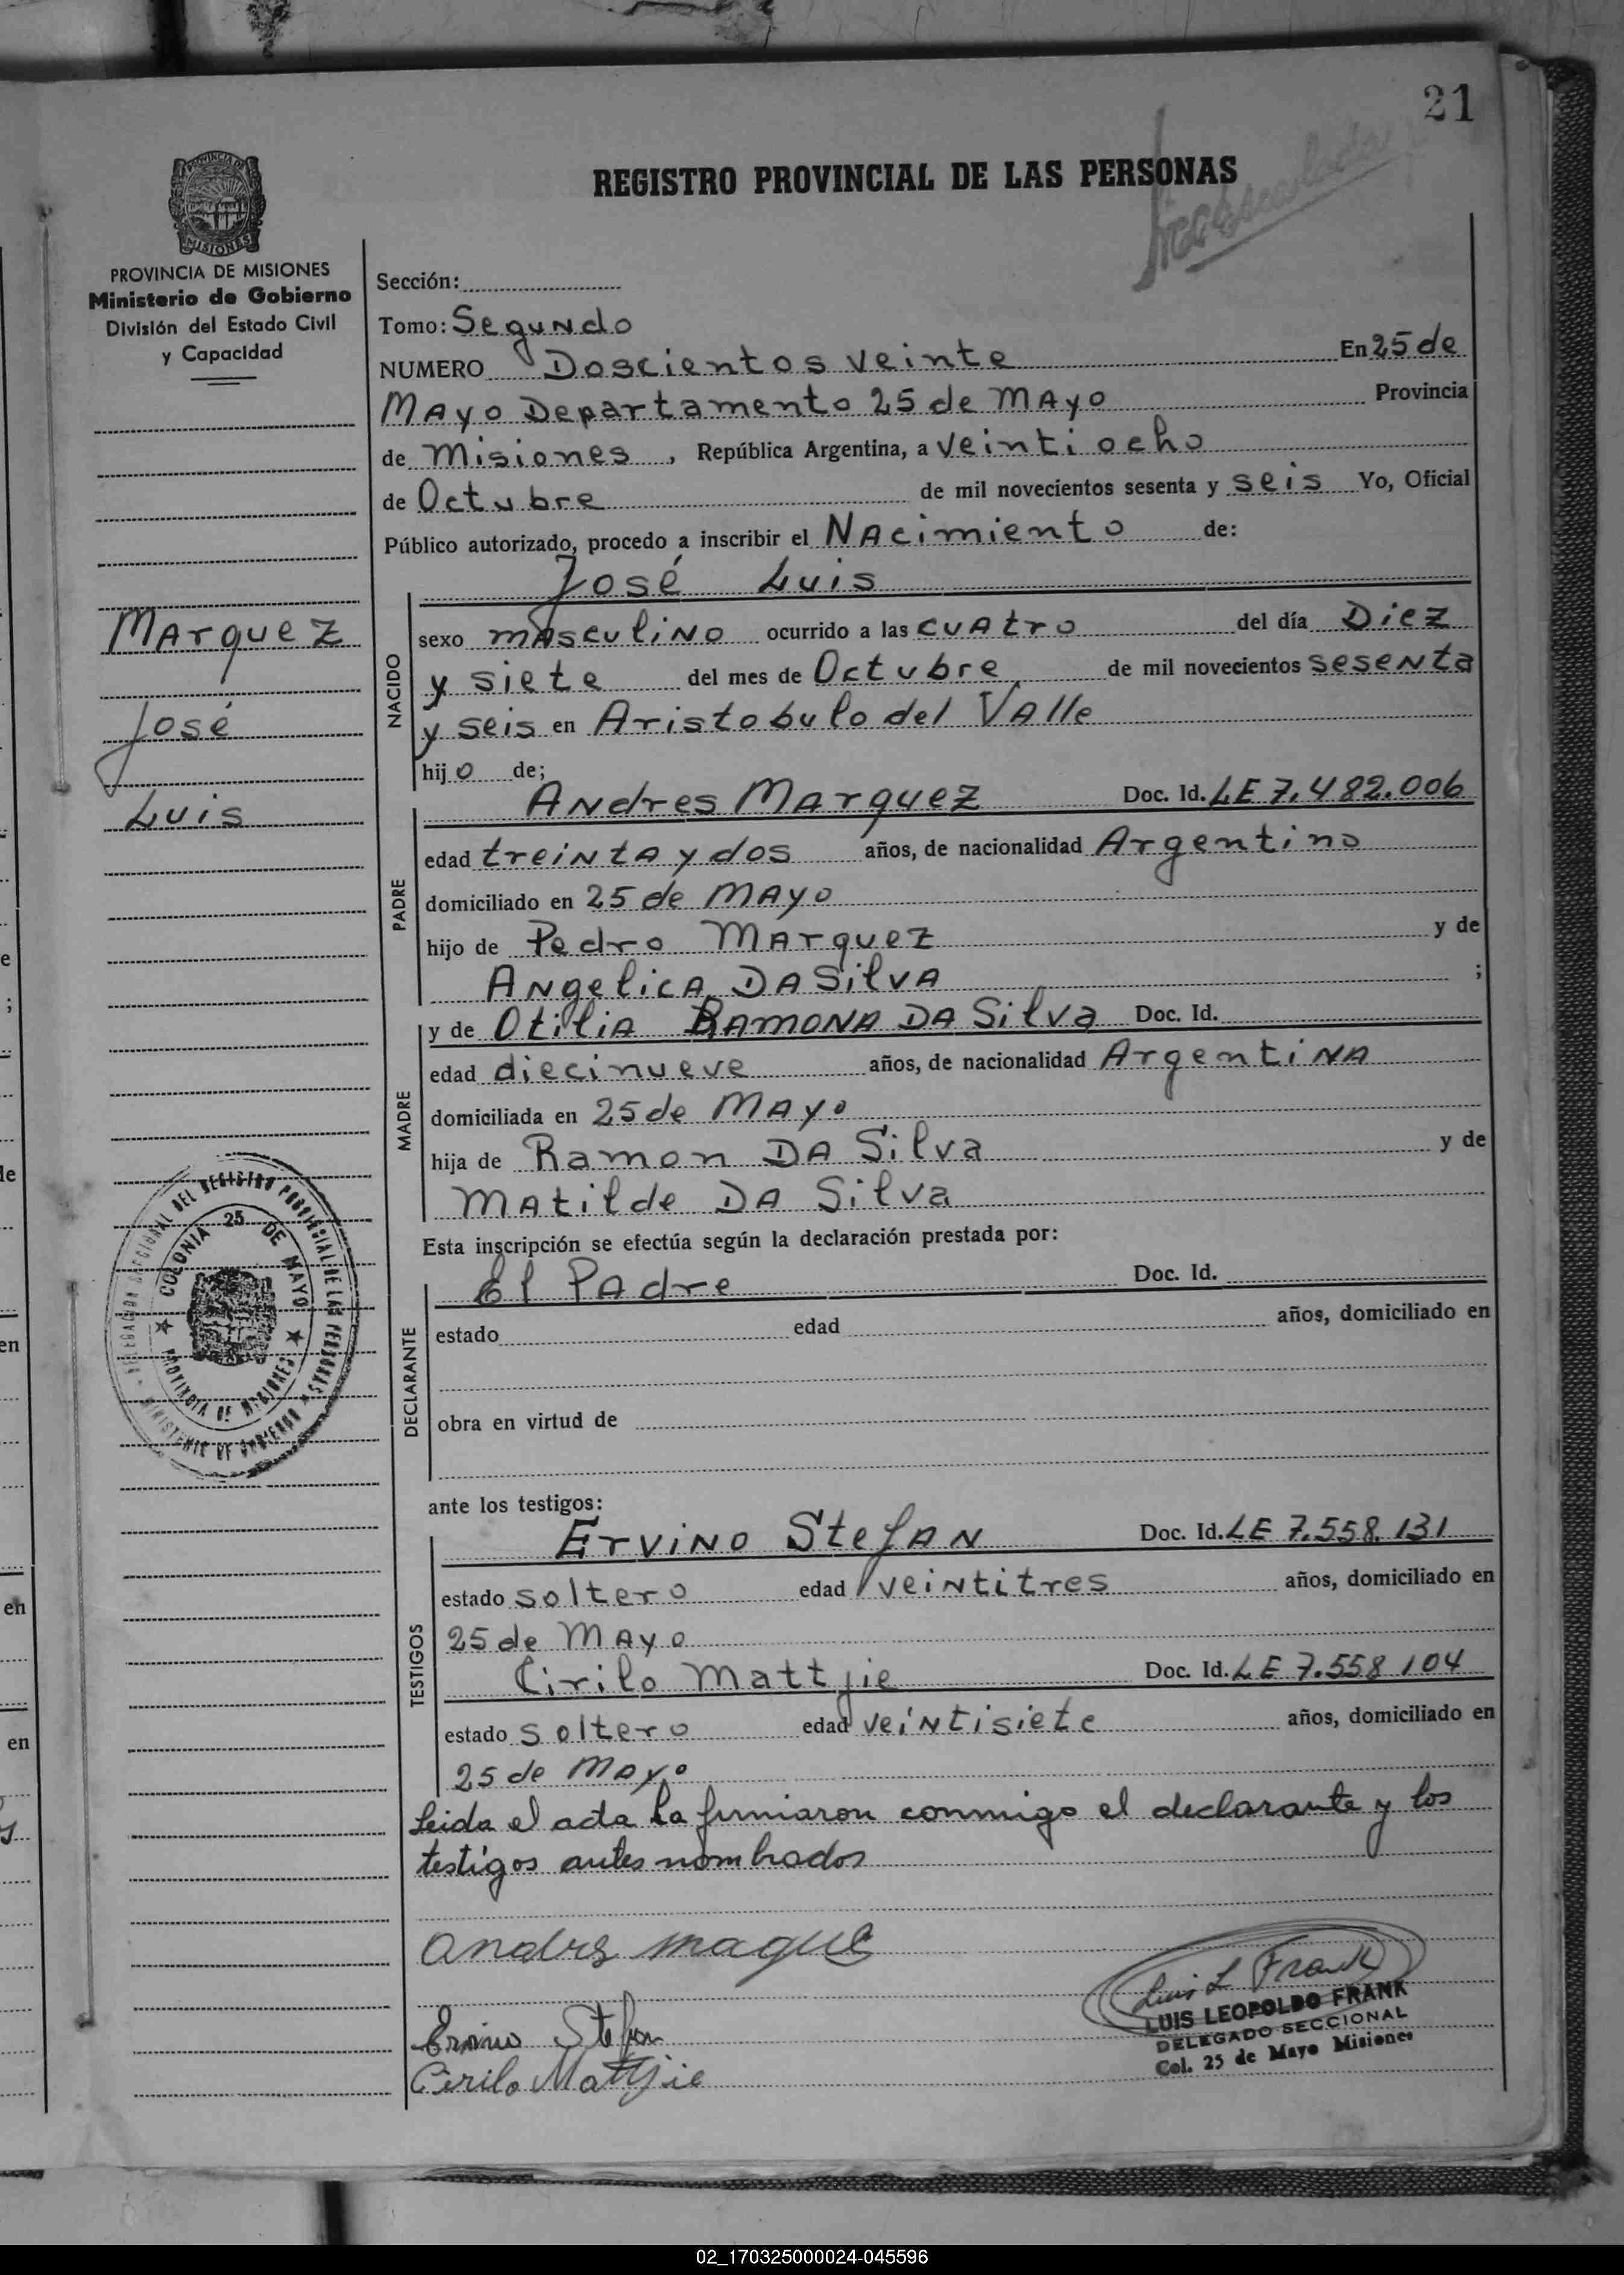 21
REGISTRO PROVINCIAL DE LAS PERSONAS
PROVINCIA DE MISIONES
Ministerio de Gobierno
División del Estado Civil
y Capacidad
Sección:
Tomo: Segundo
NUMERO Doscientos veinte En 25 de
Mayo Departamento 25 de Mayo Provincia
de Misiones, República Argentina, a veinti ocho
de Octubre de mil novecientos sesenta y seis Yo, Oficial
Público autorizado, procedo a inscribir el Nacimiento de:
José Luis
Marquez
José
Luis
NACIDO
sexo masculino ocurrido a las cuatro del día Diez
y siete del mes de Octubre de mil novecientos sesenta
y seis en Aristobulo del Valle
hijo de;
PADRE
Andres Marquez Doc. Id. LE 7.482.006
edad treinta y dos años, de nacionalidad Argentino
domiciliado en 25 de Mayo
hijo de Pedro Marquez y de
Angelica Da Silva ;
MADRE
y de Otilia Ramona Da Silva Doc. Id.
edad diecinueve años, de nacionalidad Argentina
domiciliada en 25 de Mayo
hija de Ramon Da Silva y de
Matilde Da Silva
DELEGACION SECCIONAL DEL REGISTRO PROVINCIAL DE LAS PERSONAS
MINISTERIO DE GOBIERNO
COLONIA 25 DE MAYO
PROVINCIA DE MISIONES
Esta inscripción se efectúa según la declaración prestada por:
DECLARANTE
El Padre Doc. Id.
estado edad años, domiciliado en
obra en virtud de
ante los testigos:
TESTIGOS
Ervino Stefan Doc. Id. LE 7.558.131
estado soltero edad veintitres años, domiciliado en
25 de Mayo
Cirilo Mattjie Doc. Id. LE 7.558.104
estado soltero edad veintisiete años, domiciliado en
25 de Mayo
Leida el acta la firmaron conmigo el declarante y los
testigos antes nombrados
andres maque
Ervino Stefan
Cirilo Mattjie
Luis L Frank
LUIS LEOPOLDO FRANK
DELEGADO SECCIONAL
Col. 25 de Mayo Misiones
02_170325000024-045596